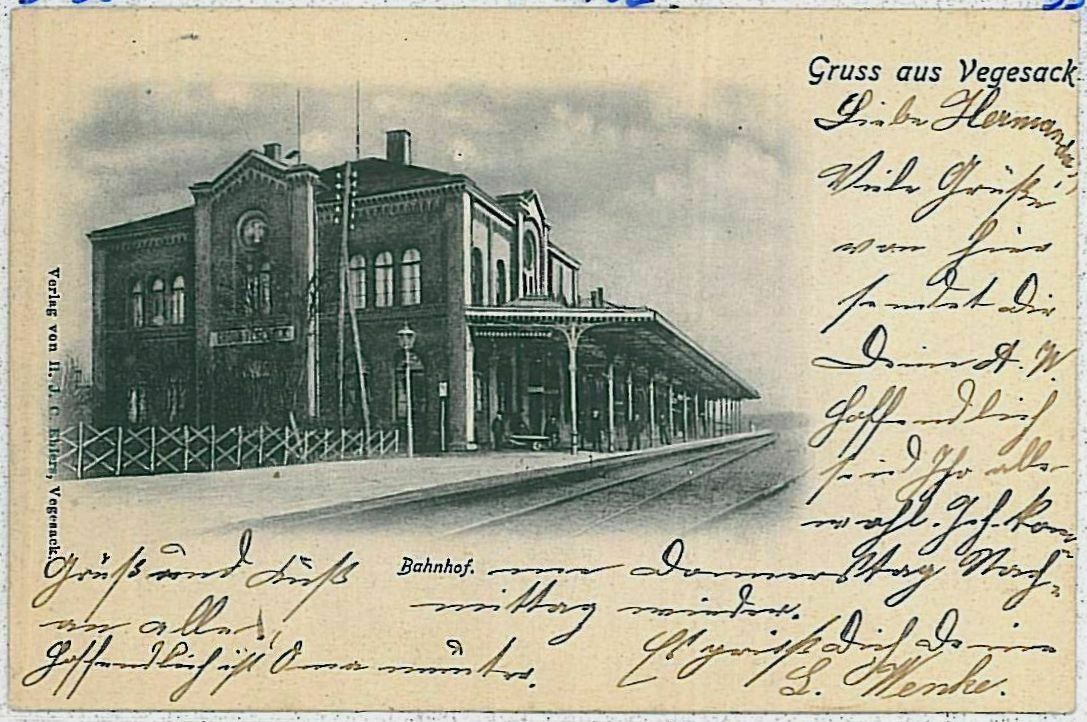 Gruss aus Vegesack
Liebe Hermanda!
Viele Grüße
von hier
sendet Dir
Deine A. W.
Hoffendlich
seid Ihr alle
wohl. Ich kom-
me Donnerstag Nach-
mittag wieder.
Es grüßt Dich Deine
L. Wenke.
Bahnhof.
Gruß und Kuß
an alle,
Hoffendlich ist Oma munter.
Verlag von H. J. C. Ehlers, Vegesack.